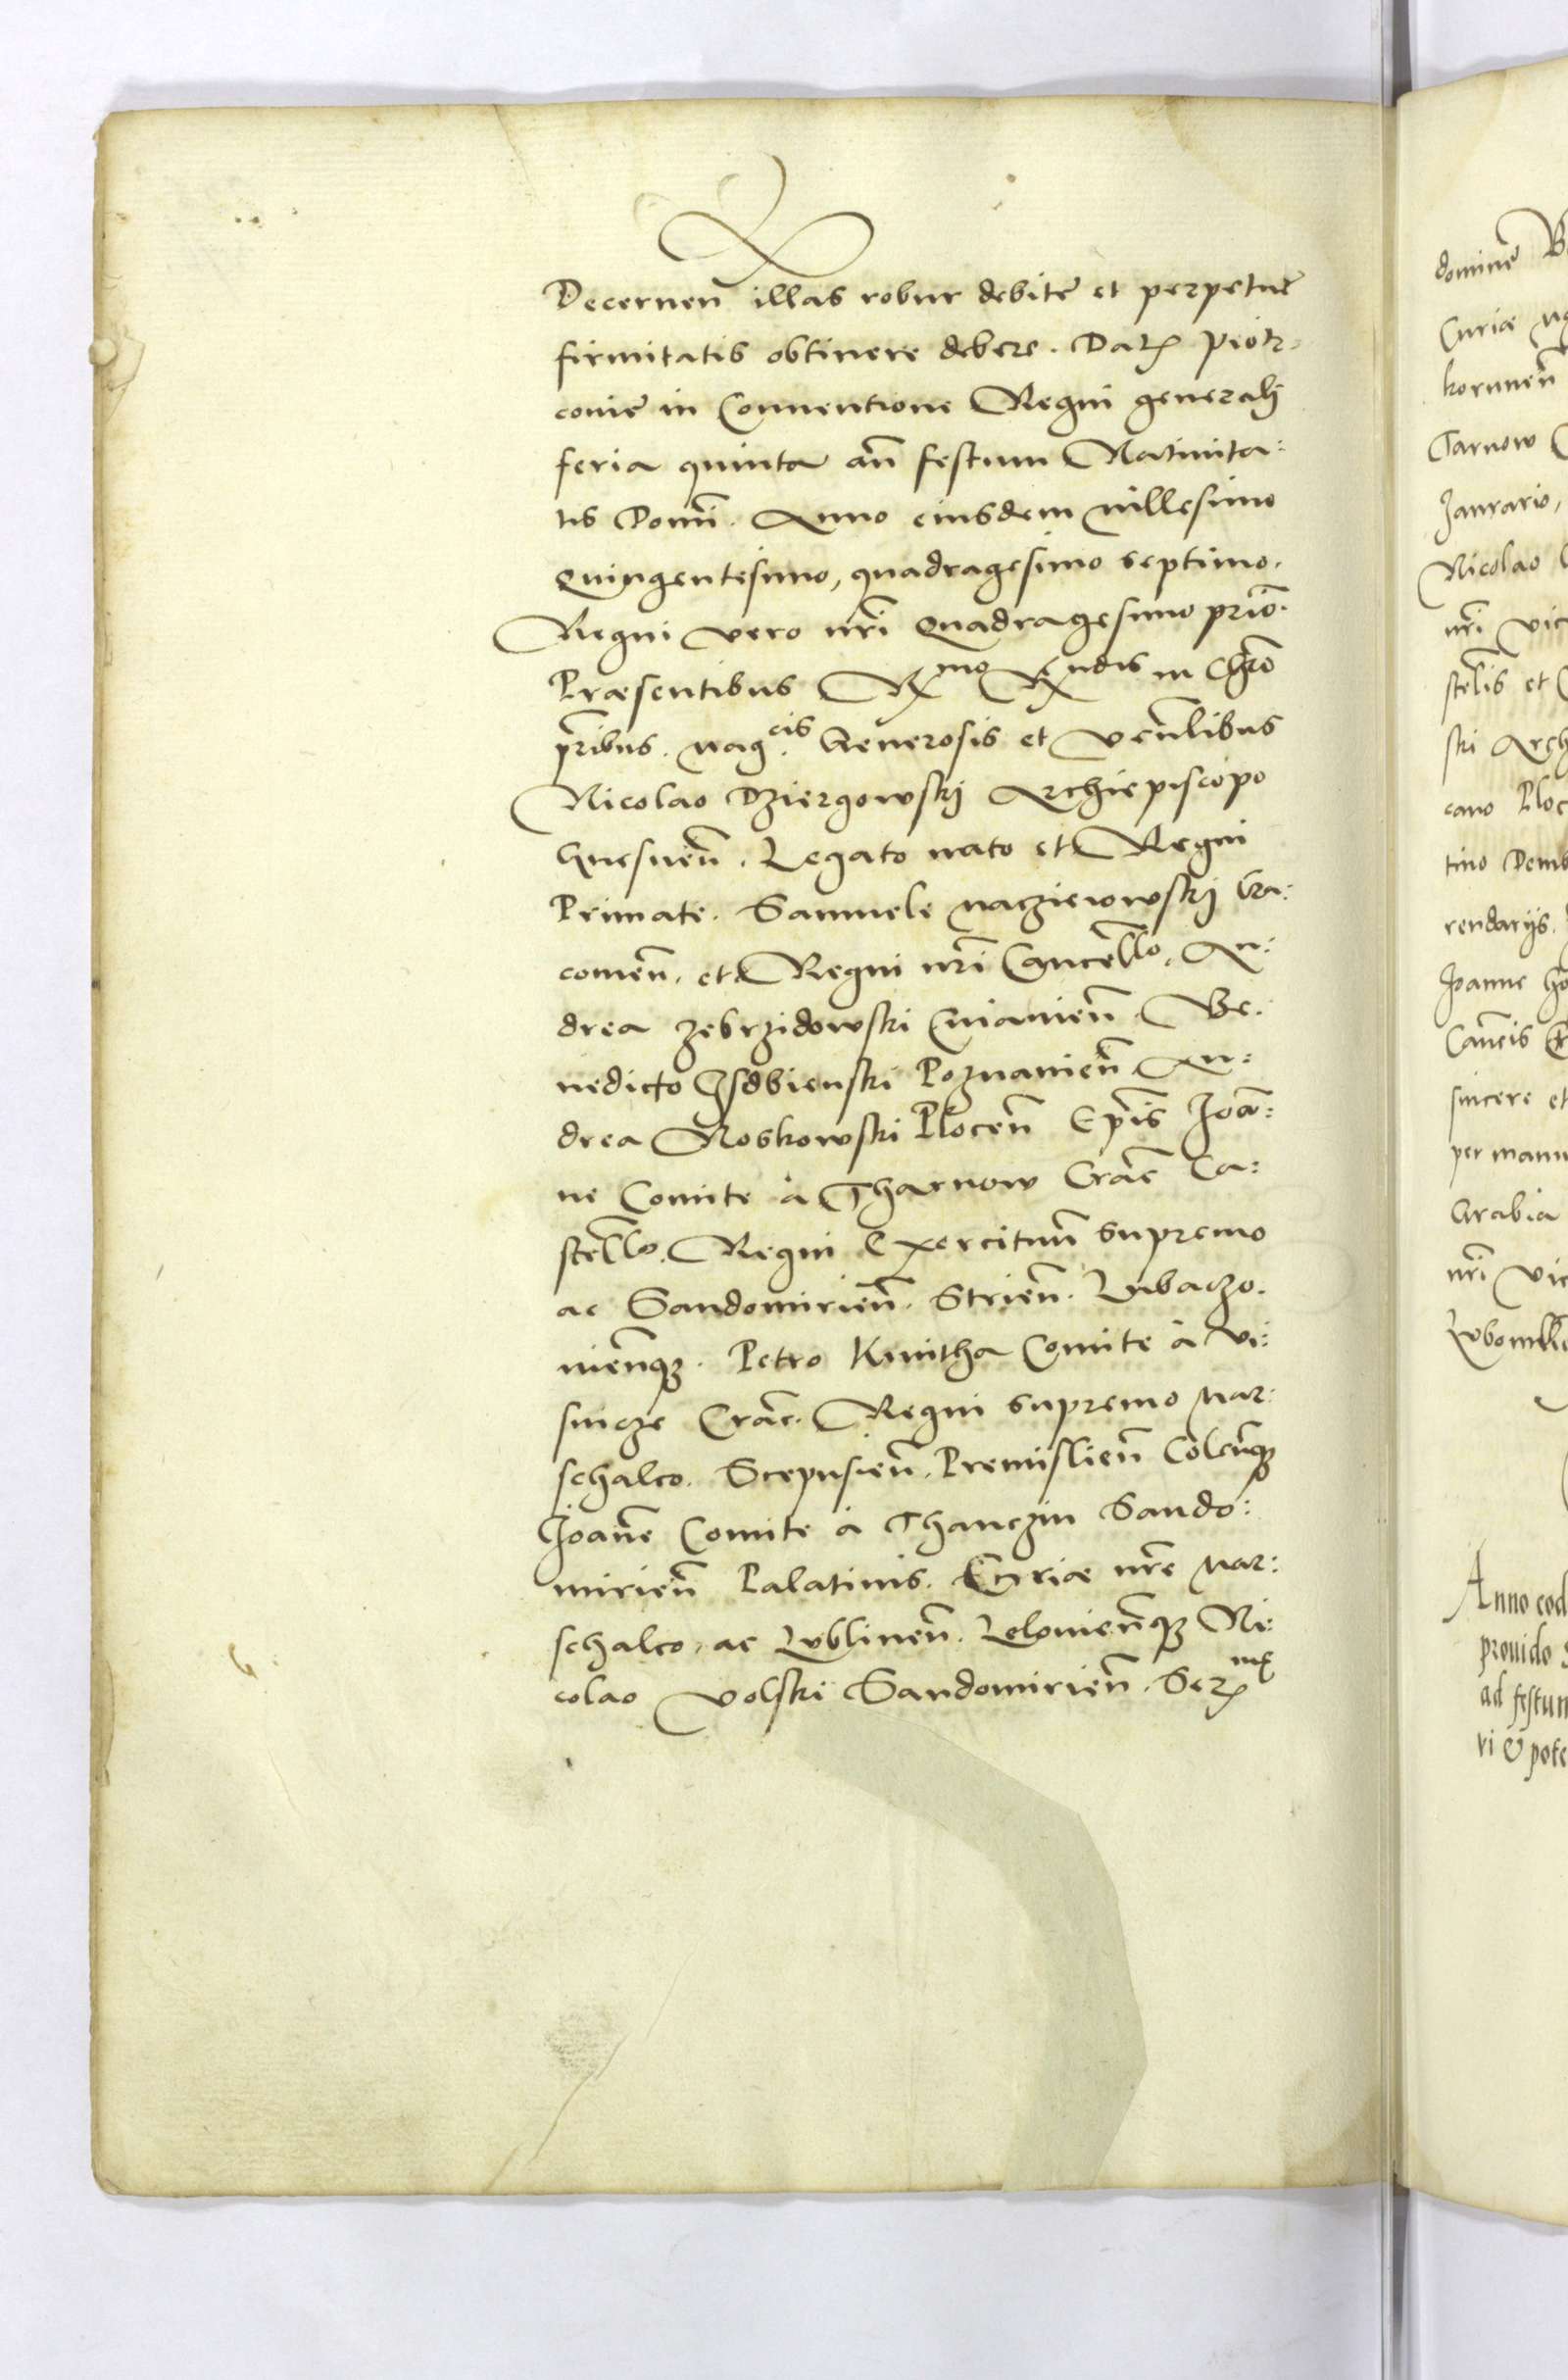 Decernen̄ illas robur debitę et perpetuę
firmitatis obtinere debere. Daṫ Piotr⸗
couię in Conuentione Regni generalj
feria quinta an̄ festum Natiuita:
tis Domī. Anno eiusdem millesimo
Quingentesimo, quadragesimo septimo.
Regni vero nrī Quadragesimo primō.
Præsentibus Rmo Rndis in Chrō
pribus. Magcis. Generosis et venlibus
Nicolao Dziergowskj Archiepiscopo
Gnesnen̄. Legato nato et Regni
Primate. Samuele Macziewowskj Cra:
couien̄. et Regni nrī Cancello. An:
drea Zebrzidowski Cuiauien̄. Be:
nedicto Isdbienski Poznanien̄ An:
drea Noskowski Plocen̄ Epis Ioā:
ne Comite à Tharnow Crac̄ Ca:
stello. Regni Exercituum̄ supremo
ac Sandomirien̄. Strien̄. Lubaczo.
uienq3. Petro Kmitha Comite à Vi:
sincze Crac̄. Regni supremo Mar:
schalco. Scepusien̄. Premislien̄ Colenq3
Ioanē Comite à Thanczin Sando:
mirien̄ Palatinis. Curiæ nrē Mar:
schalco, ac Lublinen̄. Lelouienq3 Ni:
colao Volski Sandomirien̄. Ser
dominę
Curiæ
korunen̄
Tarnow
Ianrario,
Nicolao
nrī vic
stelis et
ski Arch
cano Ploc
tino Demb
rendarijs.
Ioanne
sincere et
per manu
Grabia
nrī vic
Anno eod
prouido
ad festum
vi & pote